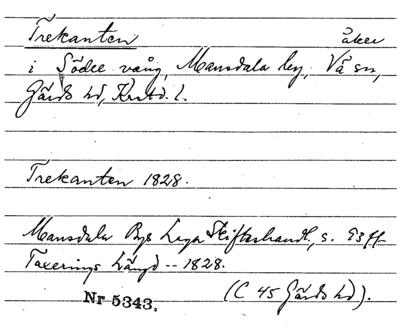 Trekanten åker
i Södre vång, Mansdala by, Vå sn,
Gärds hd, Krstd. l.
Trekanten 1828.
Mansdala Bys Laga Skifteshandl., s. 93 ff
Taxerings Längd -- 1828.
Nr 5343. (C 45 Gärds hd).